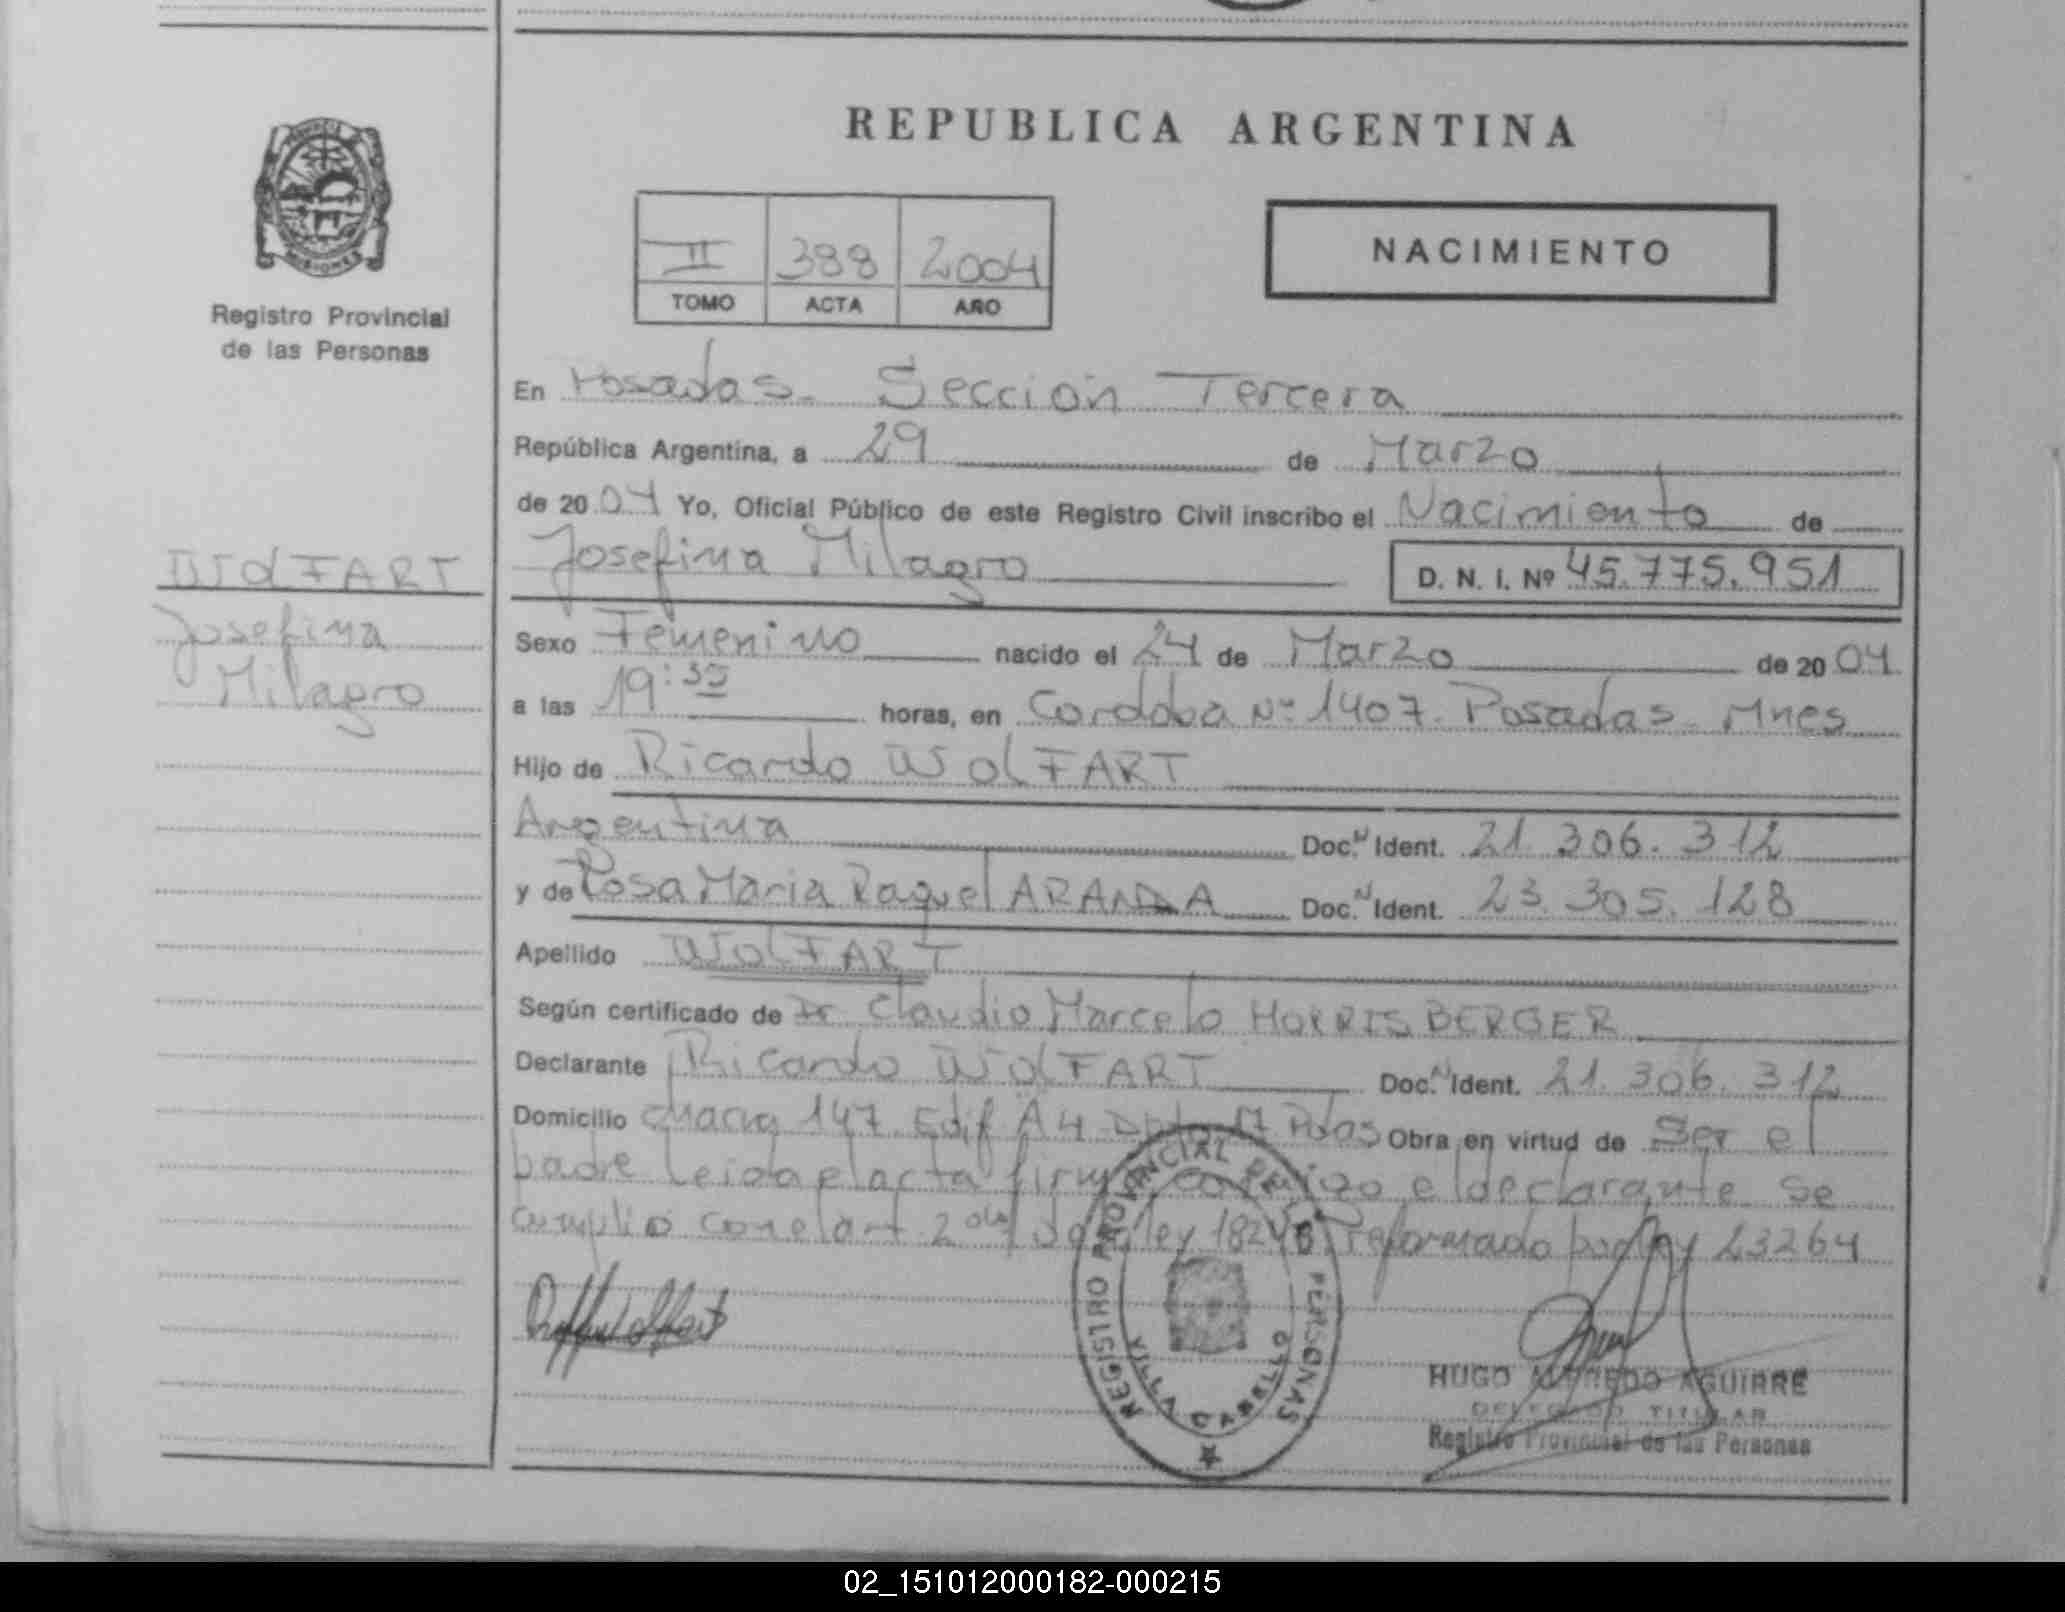 REPUBLICA ARGENTINA
MISIONES
Registro Provincial
de las Personas
II 388 2004
TOMO ACTA AÑO
NACIMIENTO
En Posadas. Sección Tercera
República Argentina, a 29 de Marzo
de 2004 Yo, Oficial Público de este Registro Civil inscribo el Nacimiento de
Josefina Milagro D. N. I. Nº 45.775.951
WolFART
Josefina
Milagro
Sexo Femenino nacido el 24 de Marzo de 2004
a las 19:35 horas, en Cordoba Nº 1407. Posadas. Mnes
Hijo de Ricardo WolFART
Argentina Doc. Ident. 21.306.312
y de Rosa Maria Raquel ARANDA Doc. Ident. 23.305.128
Apellido WolFART
Según certificado de Dr Claudio Marcelo HORRISBERGER
Declarante Ricardo WolFART Doc. Ident. 21.306.312
Domicilio chacra 147 Edif A4 Obra en virtud de Ser el
padre Leida el acta firma conmigo el declarante se
cumplio con el art 2 ley 18248 reformado por ley 23264
REGISTRO PROVINCIAL DE PERSONAS
VILLA CABELLO
HUGO ALFREDO AGUIRRE
DELEGADO TITULAR
Registro Provincial de las Personas
02_151012000182-000215